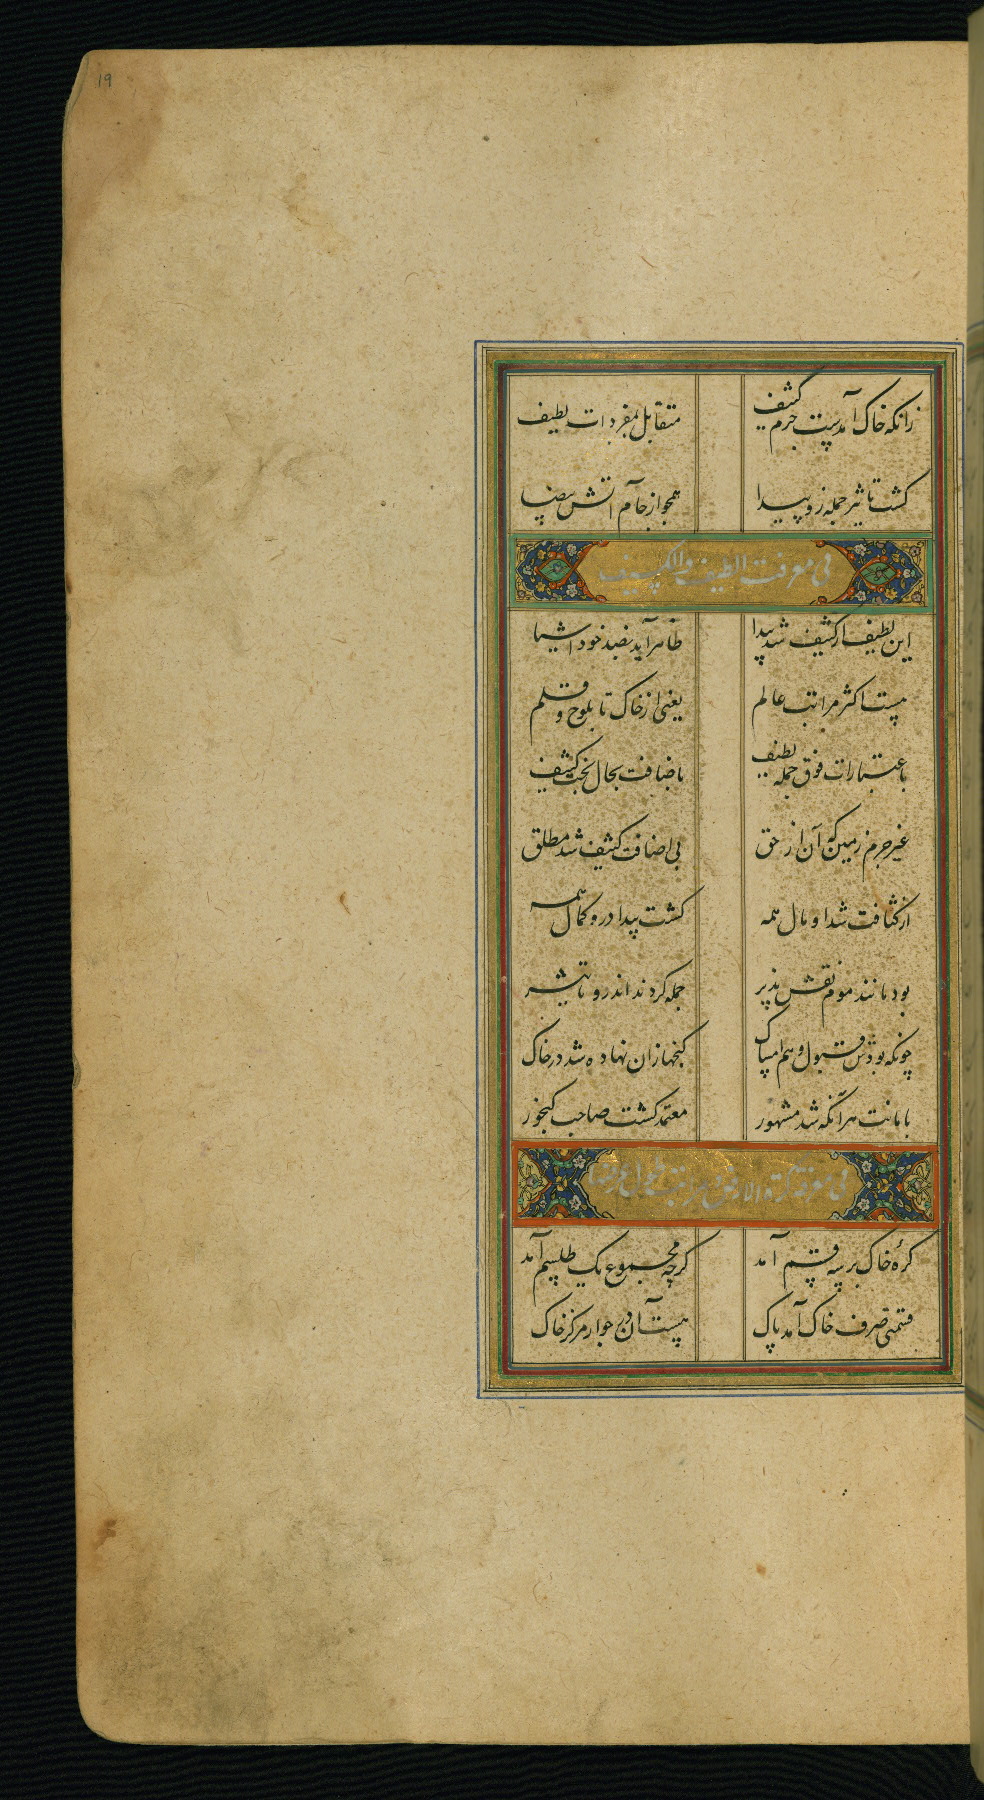 19
زانکه خاک آمدست جرم کثیف متقابل بمفردات لطیف
کشت تاثیر جمله زو پیدا همجو از جام آتش بیضا
فی معرفت الطیف والکثیف
این لطیف از کثیف شد پیدا ظاهر آید بضد خود اشیا
هست اکثر مراتب عالم یعنی از خاک تا بلوح و قلم
باعتبارات فوق جمله لطیف باضافت بحال تحت کثیف
غیر جرم زمین که آن از حق بی اضافت کثیف شد مطلق
از کثافت شد او مال همه کشت پیدا درو کمال همه
بود مانند موم نقش پذیر جمله کردند اندرو تاثیر
چونکه بودش قبول و هم امساک کنجها زان نهاده شد در خاک
بامانت هر آنکه شد مشهور معتمد کشت صاحب کنجور
فی معرفة کرة الارض
کرهٔ خاک بر سه قسم آمد کرچه مجموع یک طلسم آمد
قسمتی صرف خاک آمد پاک هست آن در جوار مرکز خاک